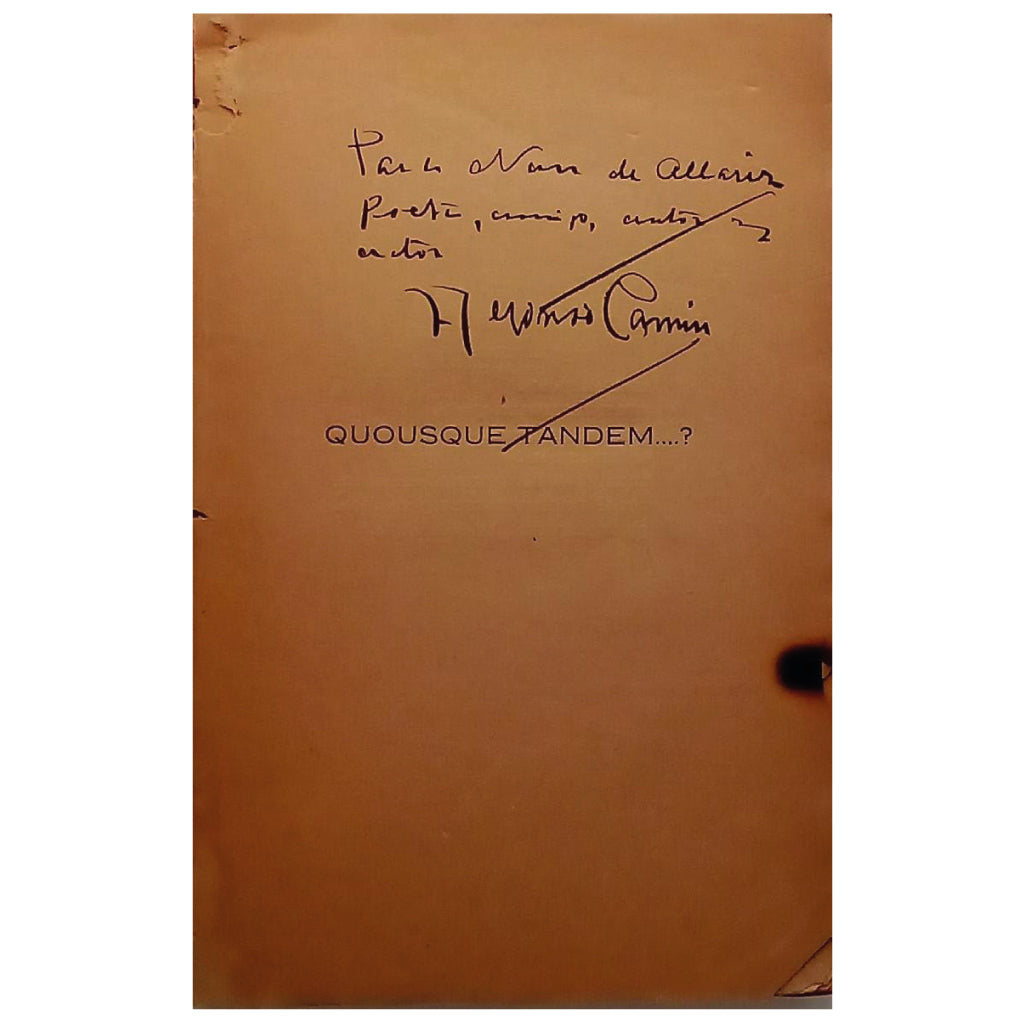 Para Nan de Allariz
Poeta, amigo, autor y
actor
Alfonso Camin
QUOUSQUE TANDEM....?